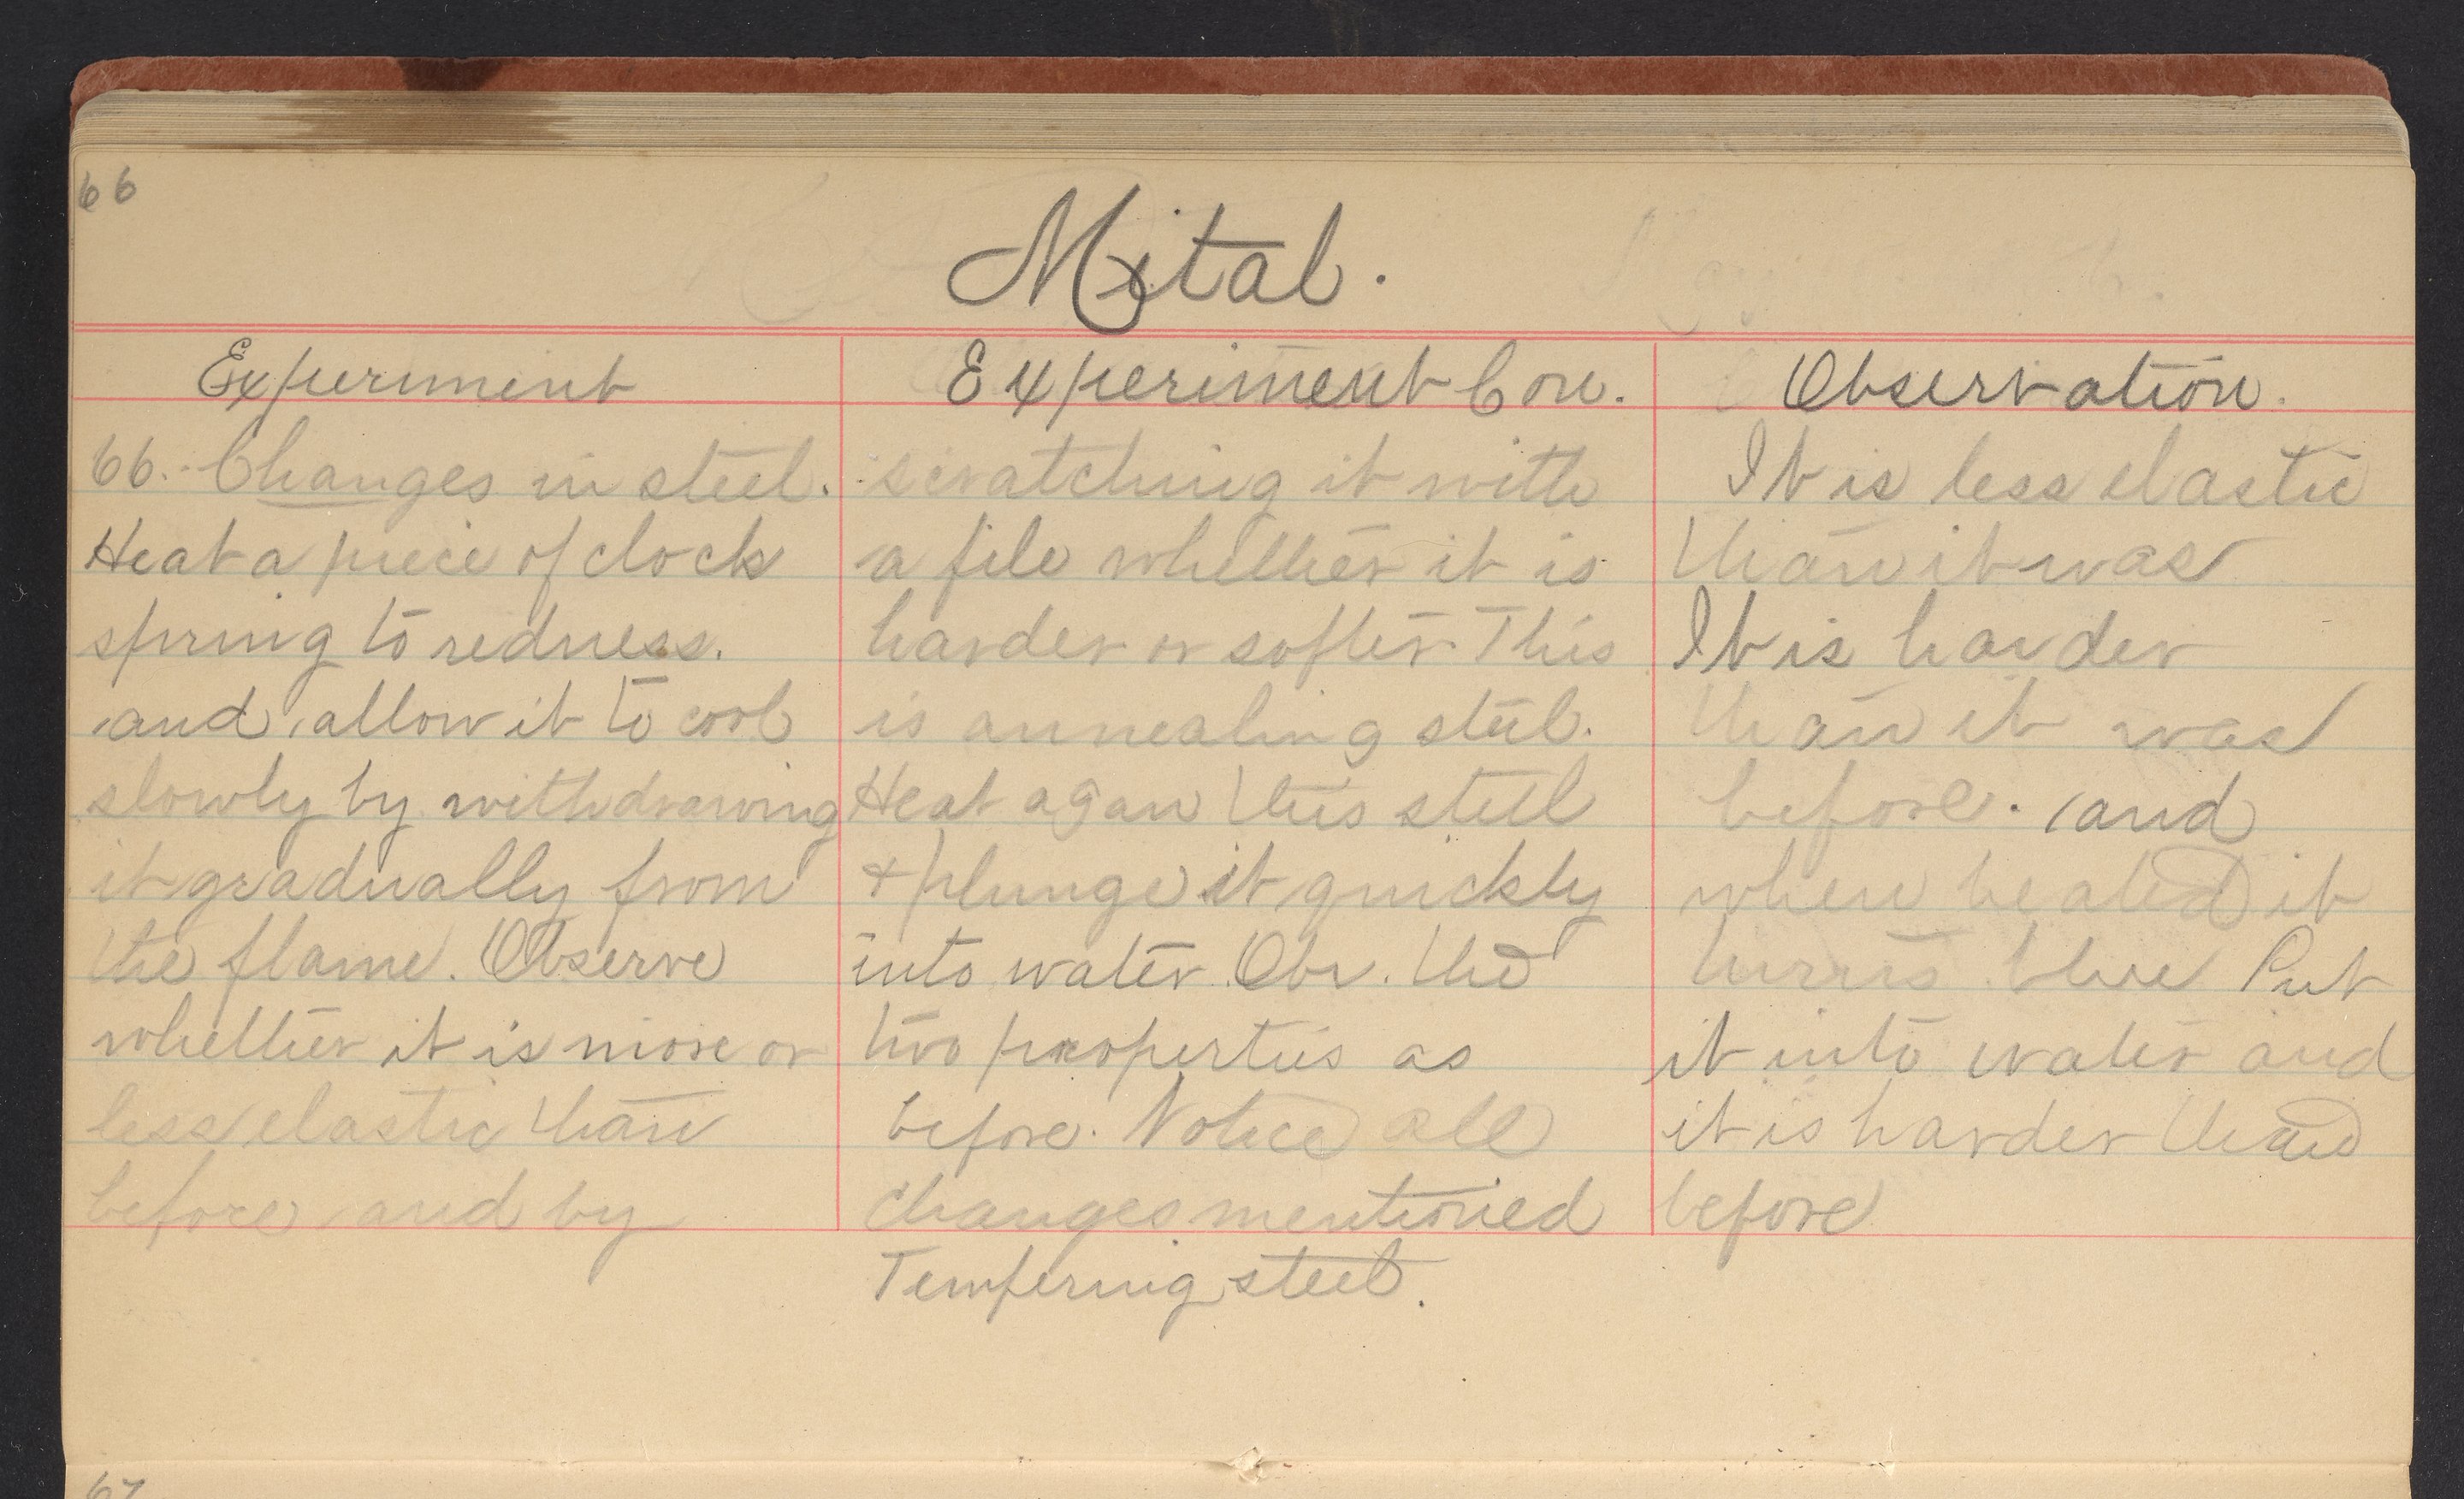 66
Metal.
Experiment
66. Changes in steel.
Heat a piece of clock
spring to redness.
and allow it to cool
slowly by withdrawing
it gradually from
the flame. Observe
whether it is more or
less elastic than
before and by
Experiment Con.
scratching it with
a file whether it is
harder or softer This
is annealing steel.
Heat agan this steel
+ plunge it quickly
into water. Obs. the
two properties as
before. Notice all
changes mentioned
Tempering steel.
Observation.
It is less elastic
than it was
It is harder
than it was
before. and
when heated it
turns blue Put
it into water and
it is harder than
before
67